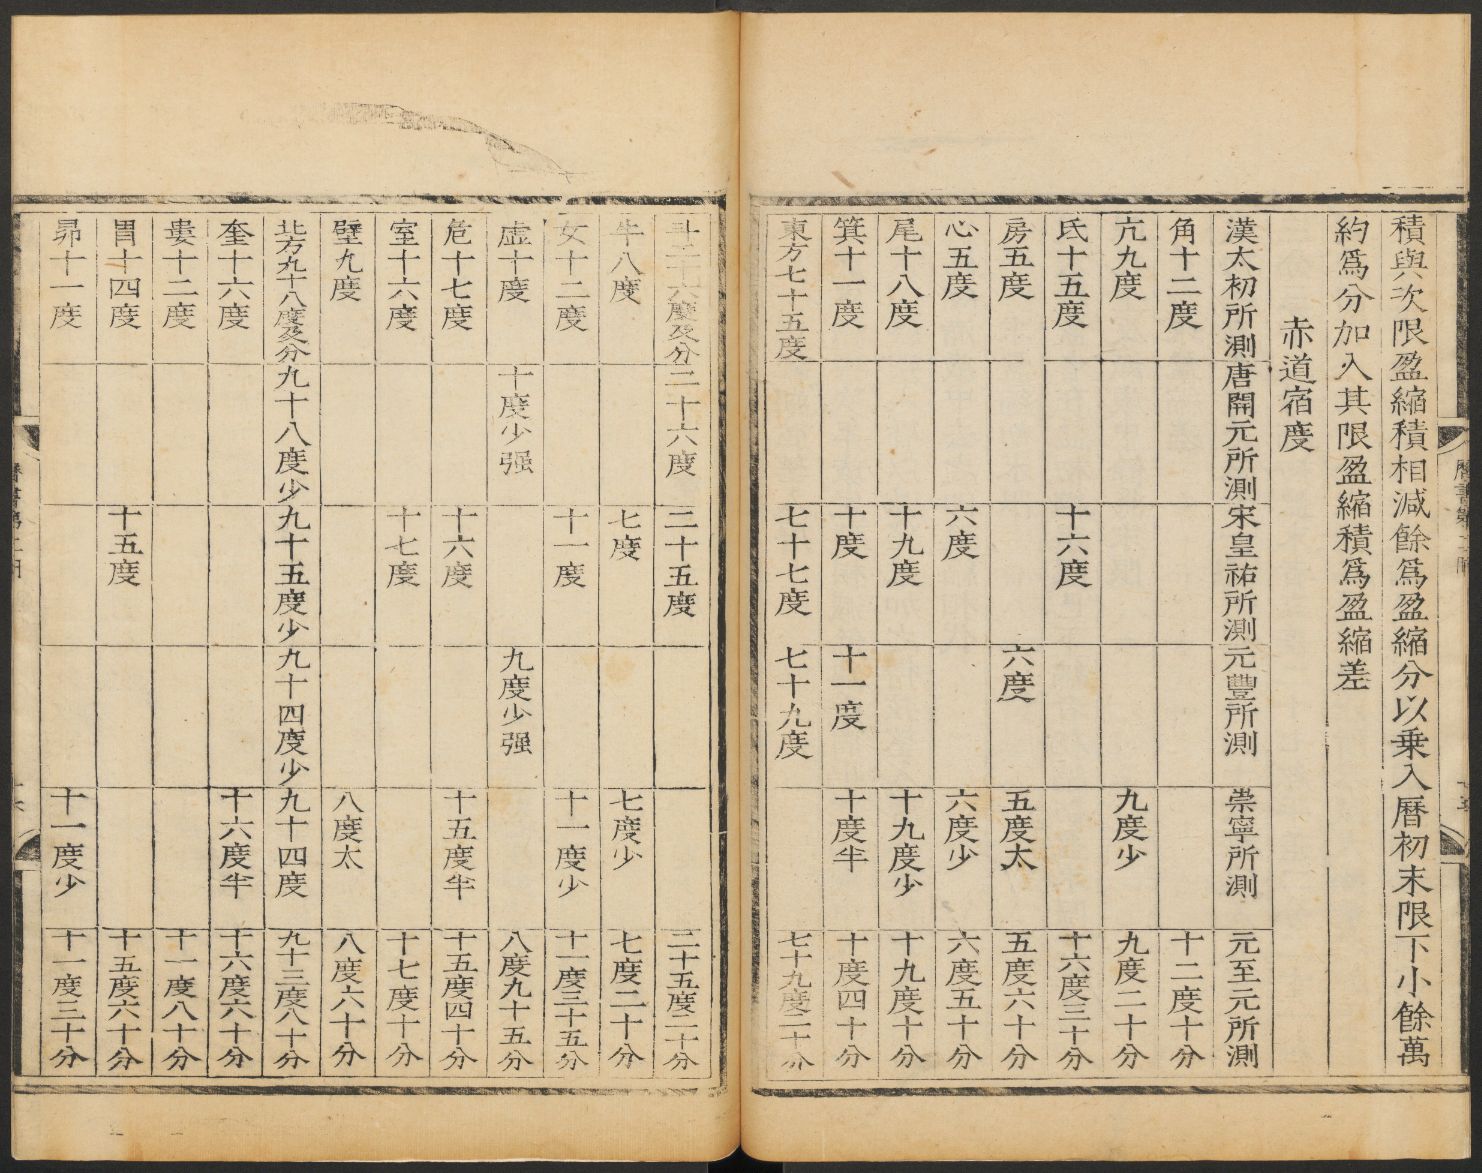 積與次限盈縮積相減餘爲盈縮分以乗入曆初末限下小餘萬
約爲分加入其限盈縮積爲盈縮差
赤道宿度
漢太初所測 唐開元所測 宋皇祐所測 元豐所測 崇寧所測 元至元所測
角十二度 十二度十分
亢九度 九度少 九度二十分
氐十五度 十六度 十六度三十分
房五度 六度 五度太 五度六十分
心五度 六度 六度少 六度五十分
尾十八度 十九度 十九度少 十九度十分
箕十一度 十度 十一度 十度半 十度四十分
東方七十五度 七十七度 七十九度 七十九度二十分
斗二十六度及分 二十六度 二十五度 二十五度二十分
牛八度 七度 七度少 七度二十分
女十二度 十一度 十一度少 十一度三十五分
虛十度 十度少强 九度少强 八度九十五分
危十七度 十六度 十五度半 十五度四十分
室十六度 十七度 十七度十分
壁九度 八度太 八度六十分
北方九十八度及分 九十八度少 九十五度少 九十四度少 九十四度 九十三度八十分
奎十六度 十六度半 十六度六十分
婁十二度 十一度八十分
胃十四度 十五度 十五度六十分
昴十一度 十一度少 十一度三十分